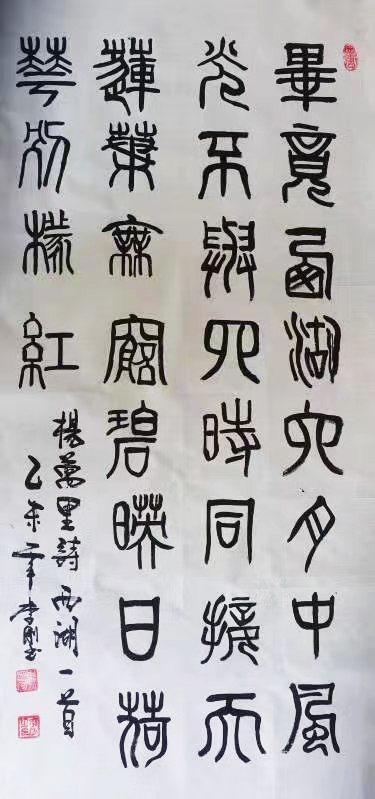 畢竟西湖六月中風
光不與四時同接天
蓮葉無窮碧暎日荷
華別樣紅
楊萬里詩西湖一首
乙未年李